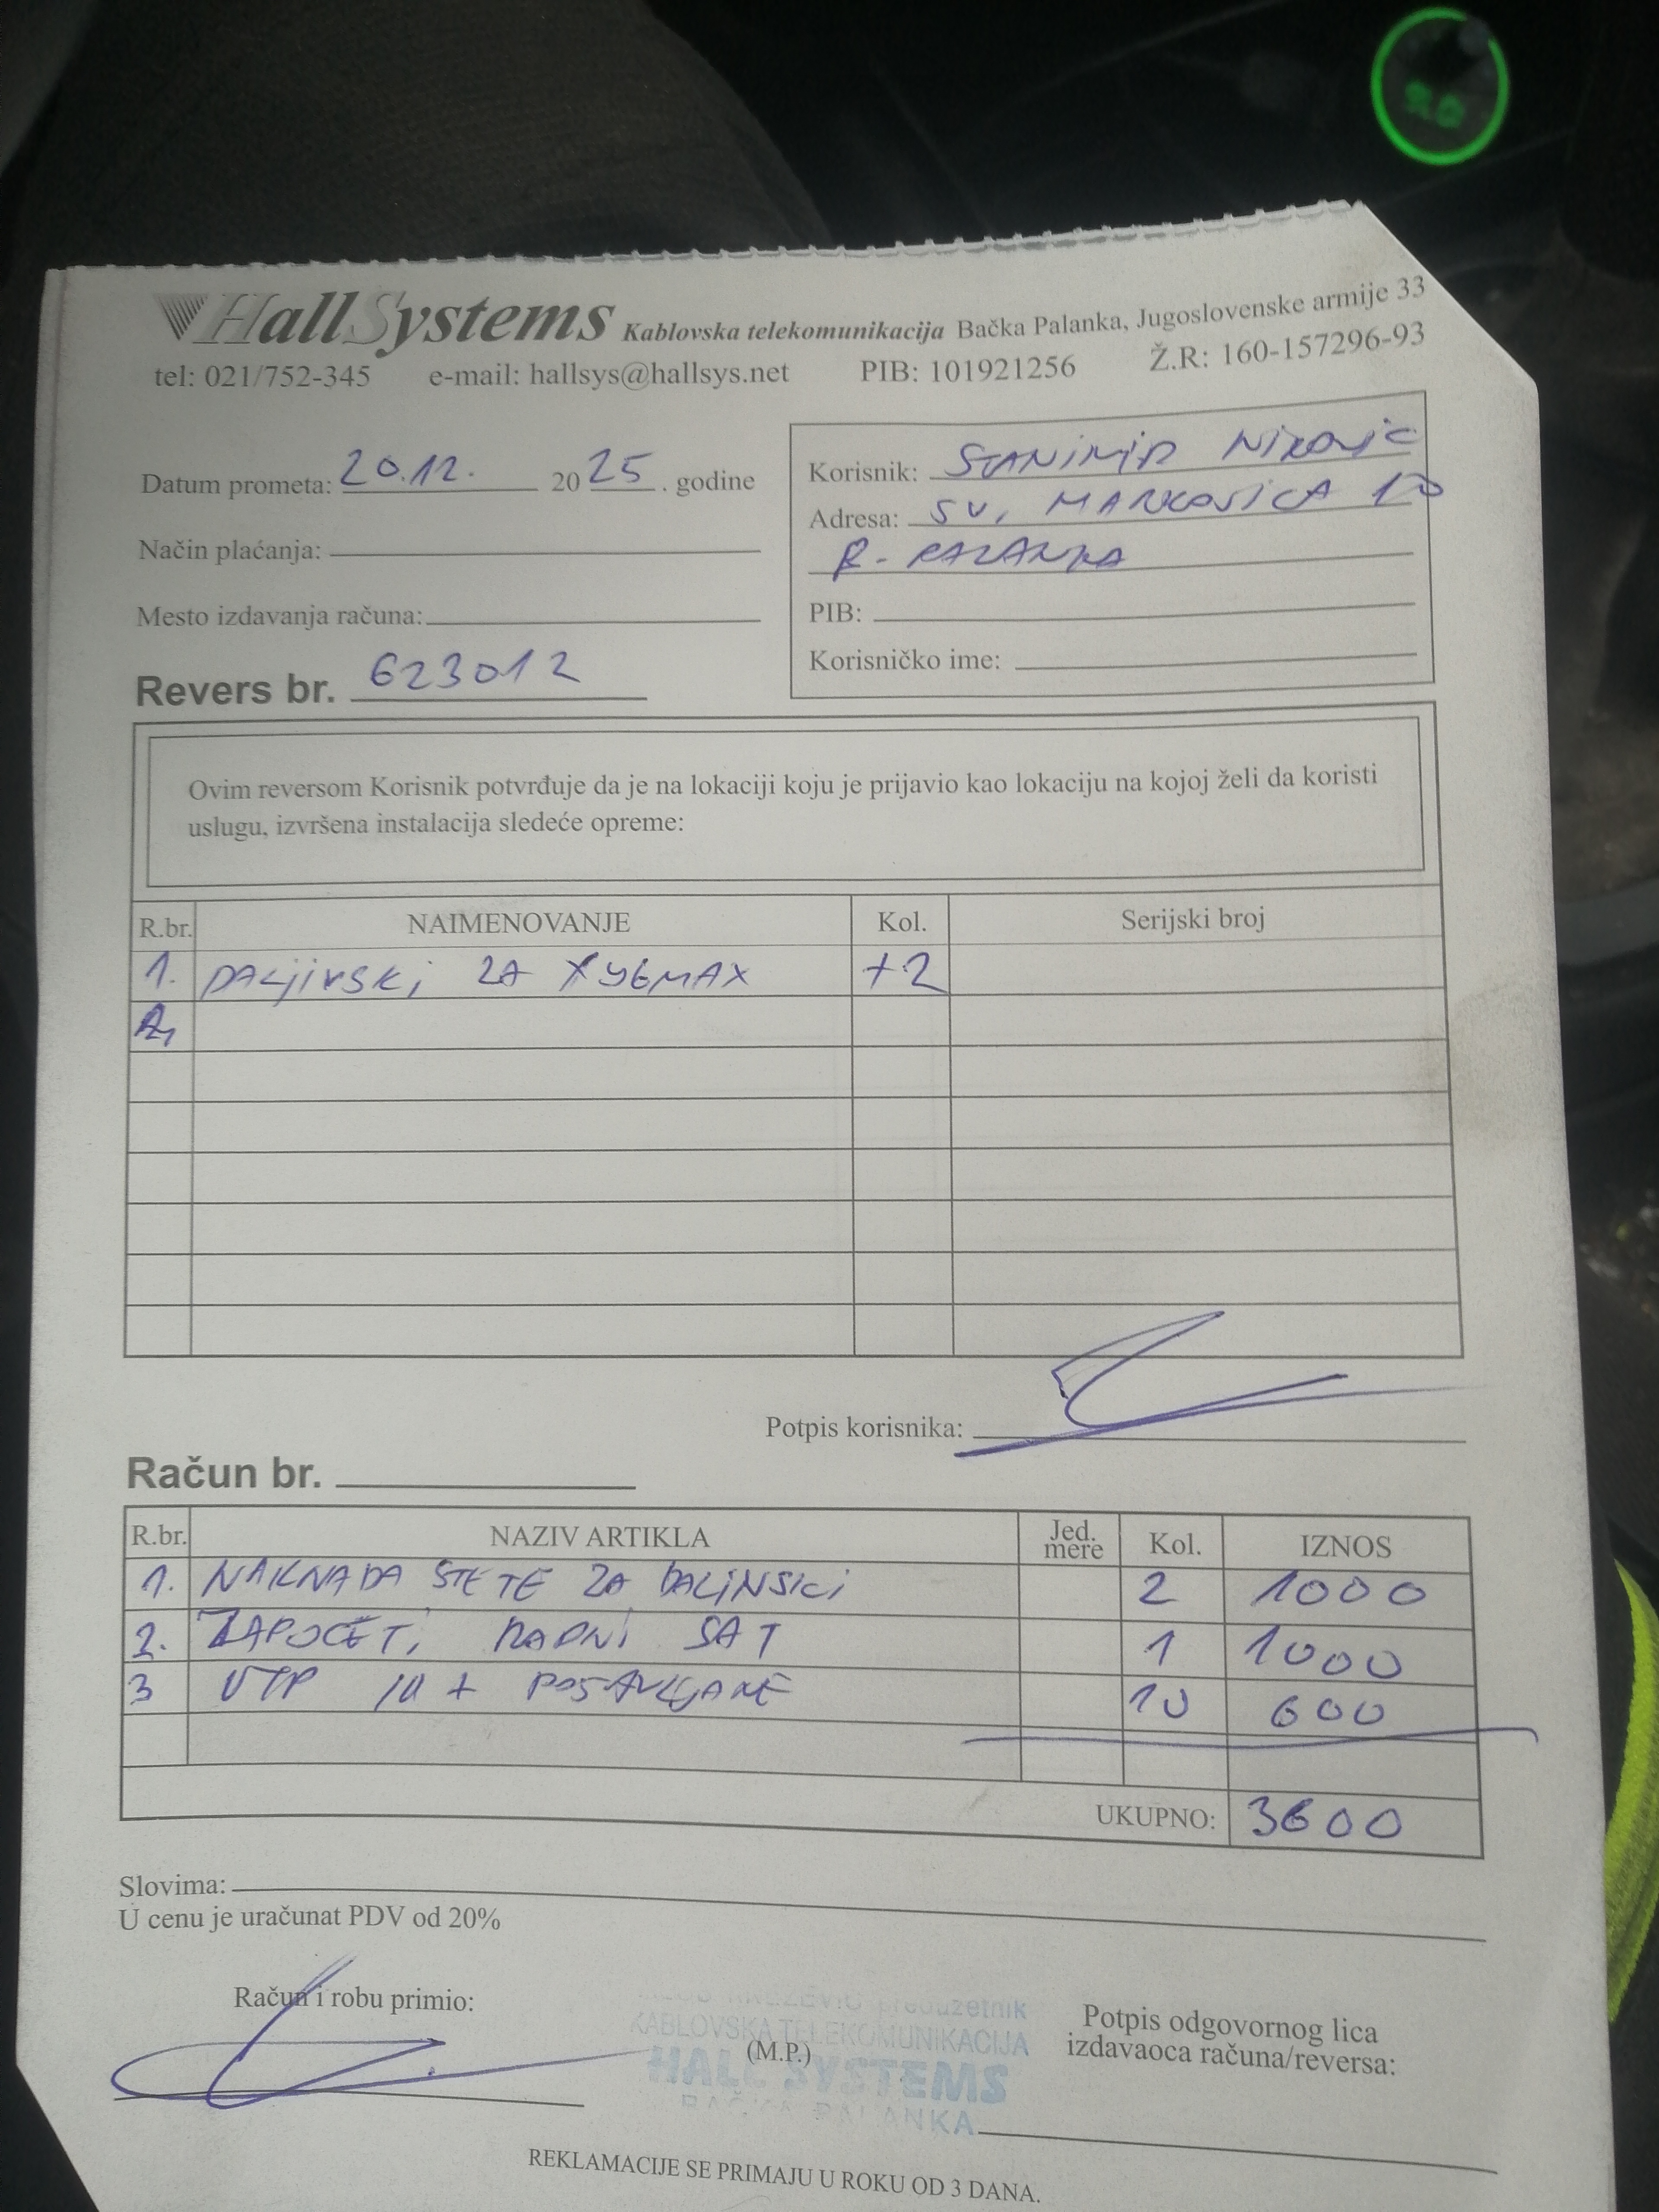 HallSystems Kablovska telekomunikacija Bačka Palanka, Jugoslovenske armije 33
tel: 021/752-345 e-mail: hallsys@hallsys.net PIB: 101921256 Ž.R: 160-157296-93
Datum prometa: 20.12. 2025. godine
Način plaćanja:
Mesto izdavanja računa:
Revers br. 623012
Korisnik: STANIMIR NIKOLIĆ
Adresa: SV. MARKOVIĆA
B. PALANKA
PIB:
Korisničko ime:
Ovim reversom Korisnik potvrđuje da je na lokaciji koju je prijavio kao lokaciju na kojoj želi da koristi
uslugu, izvršena instalacija sledeće opreme:
R.br. NAIMENOVANJE Kol. Serijski broj
1. DALJINSKI ZA X96MAX +2
2.
Potpis korisnika:
Račun br.
R.br. NAZIV ARTIKLA Jed. mere Kol. IZNOS
1. NAKNADA ŠTETE ZA DALINSKI 2 1000
2. ZAPOČETI RADNI SAT 1 1000
3 UTP 1M + POSTAVLJANJE 10 600
UKUPNO: 3600
Slovima:
U cenu je uračunat PDV od 20%
Račun i robu primio:
preduzetnik
KABLOVSKA TELEKOMUNIKACIJA
(M.P.)
HALL SYSTEMS
BAČKA PALANKA
Potpis odgovornog lica
izdavaoca računa/reversa:
REKLAMACIJE SE PRIMAJU U ROKU OD 3 DANA.